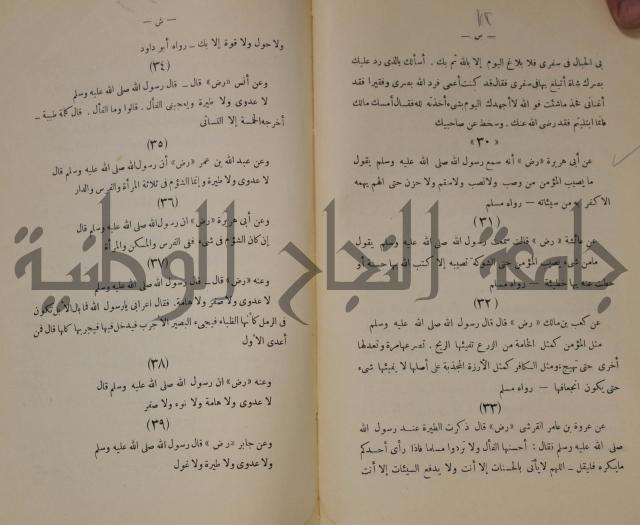 ١١٢
— س —
بى الحبال فى سفرى فلا بلاغ اليوم إلا بالله ثم بك . أسألك بالذى رد عليك
بصرك شاة أتبلغ بها فى سفرى فقال قد كنت أعمى فرد الله بصرى وفقيرا فقد
أغنانى فخذ ماشئت فو الله لا أجهدك اليوم بشىء أخذته لله فقال أمسك مالك
فانما ابتليتم فقد رضى الله عنك . وسخط عن صاحبيك
« ٣٠ »
عن أبى هريرة « رض » أنه سمع رسول الله صلى الله عليه وسلم يقول
مايصيب المؤمن من وصب ولانصب ولاسقم ولا حزن حتى الهم يهمه
الا كفر به من سيئاته — رواه مسلم
(٣١)
عن عائشة « رض » قالت سمعت رسول الله صلى الله عليه وسلم يقول
مامن شىء يصيب المؤمن حتى الشوكة تصيبه إلا كتب الله بها حسنة أو
حطت عنه بها خطيئة — رواه مسلم
(٣٢)
عن كعب بن مالك « رض » قال قال رسول الله صلى الله عليه وسلم
مثل المؤمن كمثل الخامة من الزرع تفيئها الريح . تصرعها مرة وتعدلها
أخرى حتى تهيج ومثل الكافر كمثل الأرزة المجذبة على أصلها لا يفيئها شىء
حتى يكون انجعافها — رواه مسلم
(٣٣)
عن عروة بن عامر القرشى « رض » قال ذكرت الطيرة عند رسول الله
صلى الله عليه وسلم فقال : أحسنها الفأل ولا تردوا مسلما فاذا رأى أحدكم
مايكره فليقل — اللهم لايأتى بالحسنات إلا أنت ولا يدفع السيئات إلا أنت
— ش —
ولا حول ولا قوة إلا بك . رواه أبو داود
(٣٤)
وعن أنس « رض » قال — قال رسول الله صلى الله عليه وسلم
لا عدوى ولا طيرة ويعجبنى الفأل . قالوا وما الفأل . قال كلمة طيبة —
أخرجه الخمسة إلا النسائى
(٣٥)
وعن عبد الله بن عمر « رض » أن رسول الله صلى الله عليه وسلم قال
لا عدوى ولا طيرة وإنما الشؤم فى ثلاثة المرأة والفرس والدار
(٣٦)
وعن أبى هريرة « رض » ان رسول الله صلى الله عليه وسلم قال
إن كان الشؤم فى شىء ففى الفرس والمسكن والمرأة
(٣٧)
وعنه « رض » قال — قال رسول الله صلى الله عليه وسلم
لا عدوى ولا صفر ولا هامة . فقال اعرابى يارسول الله فما بال الابل تكون
فى الرمل كأنها الظباء فيجىء البعير الأجرب فيدخل فيها فيجربها كلها قال فمن
أعدى الأول
(٣٨)
وعنه « رض » ان رسول الله صلى الله عليه وسلم قال
لا عدوى ولا هامة ولا نوء ولا صفر
(٣٩)
وعن جابر « رض » قال رسول الله صلى الله عليه وسلم
ولا عدوى ولا طيرة ولا غول
جامعة النجاح الوطنية